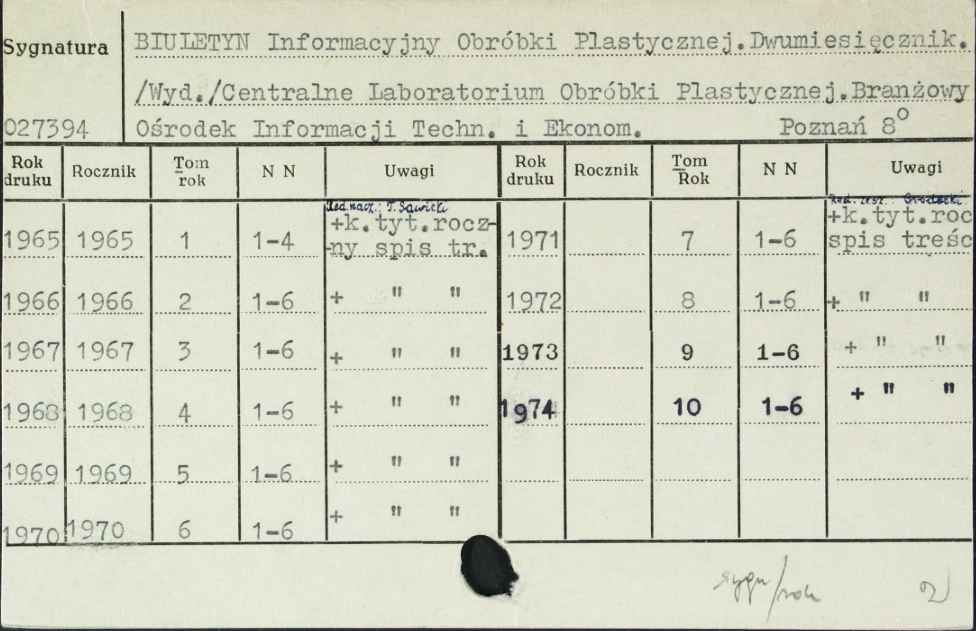 Sygnatura BIULETYN Informacyjny Obróbki Plastycznej. Dwumiesięcznik.
/Wyd./Centralne Laboratorium Obróbki Plastycznej. Branżowy
027394 Ośrodek Informacji Techn. i Ekonom. Poznań 8°
Rok druku Rocznik Tom rok N N Uwagi Rok druku Rocznik Tom Rok N N Uwagi
Red. nacz.: T. Sawicki
1965 1965 1 1-4 +k.tyt.rocz- 1971 7 1-6 +k.tyt.roc
-ny spis tr. spis treśc
1966 1966 2 1-6 + " " 1972 8 1-6 + " "
1967 1967 3 1-6 + " " 1973 9 1-6 + " "
1968 1968 4 1-6 + " " 1974 10 1-6 + " "
1969 1969 5 1-6 + " "
1970 1970 6 1-6 + " "
sygn/rok